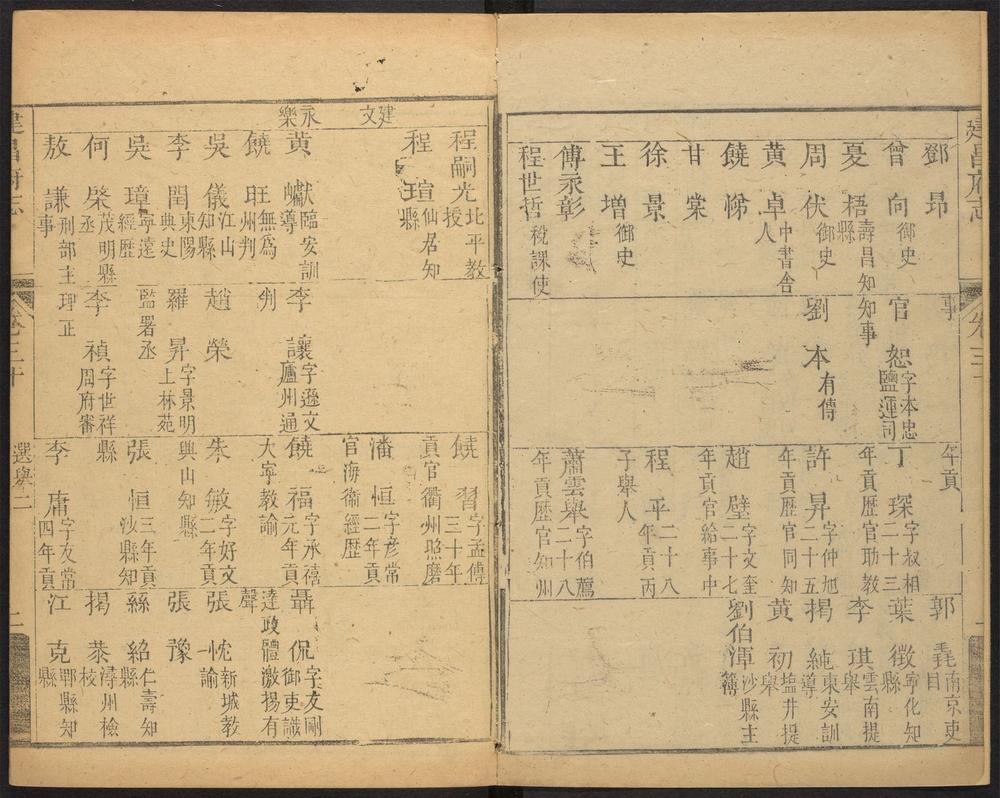 建昌府志
卷三十
鄧昂
曾向 御史
夏梧 壽昌知縣
周伏 御史
黃卓 中書舍人
饒悌
甘棠
徐景
王增 御史
傅永彰
程世哲 稅課使
事
官恕 字本忠鹽運司
知事
劉本 有傳
年貢
丁琛 字叔相二十三
年貢歷官助教
許昇 字仲旭二十五
年貢歷官同知
趙璧 字文奎二十七
年貢官給事中
程平 二十八年貢丙
子舉人
蕭雲舉 字伯薦二十八
年貢歷官知州
郭 南京吏目
葉徵 寧化知縣
李琪 雲南提舉
揭純 東安訓導
黃初 塩井提舉
劉伯渾 沙縣主簿
建文
程嗣光 北平教授
程瑄 仙居知縣
永樂
黃獻 臨安訓導
饒旺 無為州判
吳儀 江山知縣
李閏 東陽典史
吳璋 寧遠經歷
何棨 茂明縣丞
敖謙 刑部主事
李讓 字遜文廬州通
判
趙榮
羅昇 字景明上林苑
監署丞
李禎 字世祥周府審
理正
饒習 字孟傅三十年
貢官衢州照磨
潘恒 字彥常二年貢
官海衛經歷
饒福 字承禧元年貢
大寧教諭
朱敏 字好文二年貢
興山知縣
張恒 三年貢沙縣知
縣
李庸 字友常四年貢
聶侃 字友剛御史識
達政體激揚有
聲
張忱 新城教諭
張豫
繇紹 仁壽知縣
揭恭 潯州檢校
江克 鄲縣知縣
建昌府志
卷三十
選舉二
二